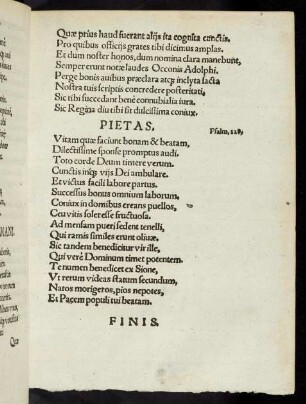 Quæ prius haud fuerant alijs ita cognita cunctis.
Pro quibus officijs grates tibi dicimus amplas.
Et dum noster honos, dum nomina clara manebunt,
Semper erunt notæ laudes Occonis Adolphi.
Perge bonis auibus præclara atq; inclyta facta
Nostra tuis scriptis concredere posteritati,
Sic tibi succedant bene connubialia iura.
Sic Regina diu tibi sit dulcissima coniux.
PIETAS.
Psalm. 128.
Vitam quæ faciunt bonam & beatam,
Dilectissime sponse promptus audi.
Toto corde Deum timere verum.
Cunctis inq; vijs Dei ambulare.
Et victus facili labore partus.
Successus bonus omnium laborum,
Coniux in domibus creans puellos,
Ceu vitis solet esse fructuosa.
Ad mensam pueri sedent tenelli,
Qui ramis similes erunt oliuæ.
Sic tandem benedicitur vir ille,
Qui verè Dominum timet potentem.
Te numen benedicet ex Sione,
Vt rerum videas statum secundum,
Natos morigeros, pios nepotes,
Et Pacem populi tui beatam.
FINIS.